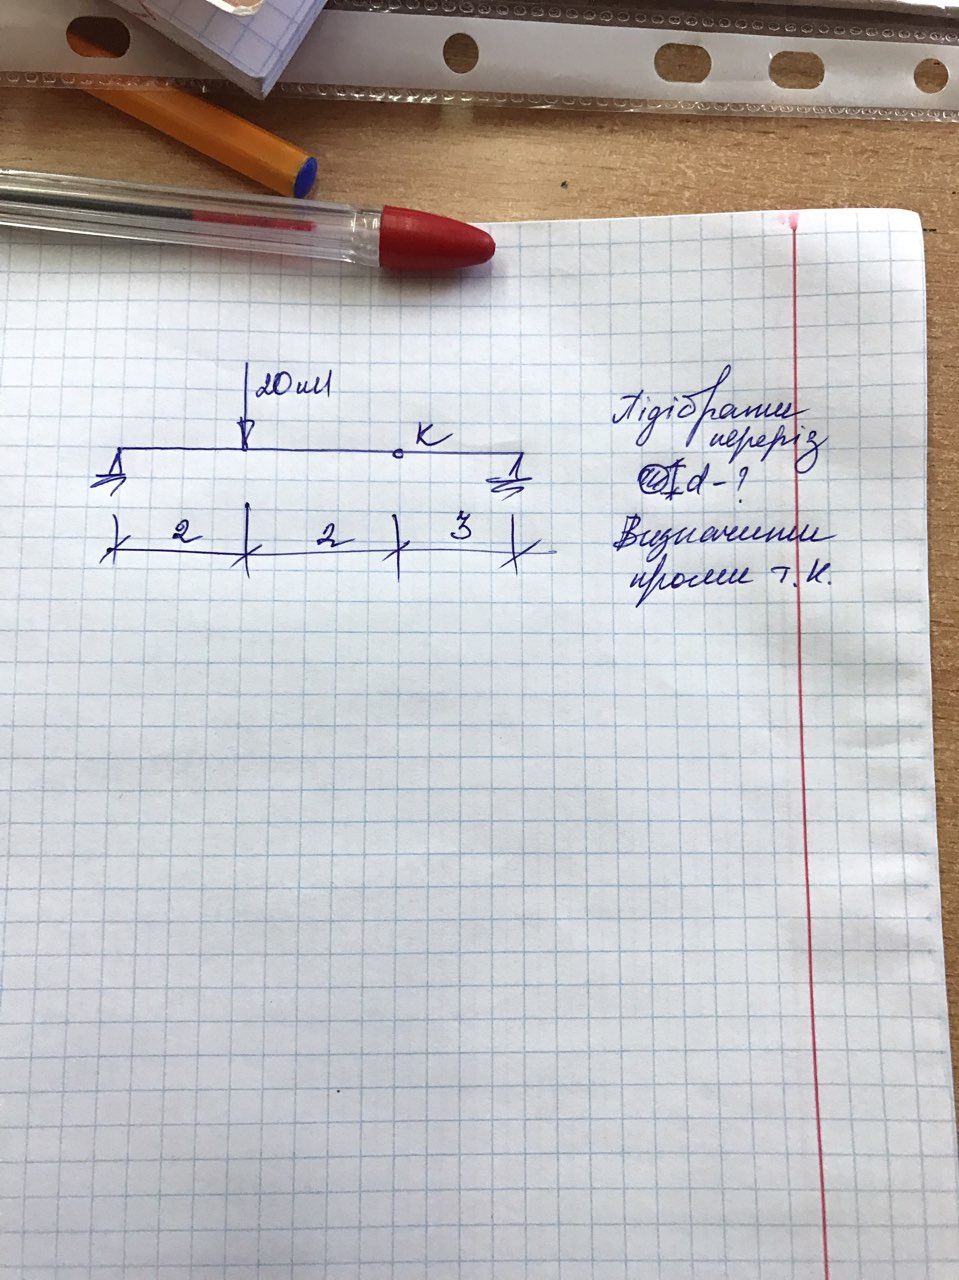 20 кН
К
2 2 3
Підібрати
переріз
I d - ?
Визначити
прогин т. К.